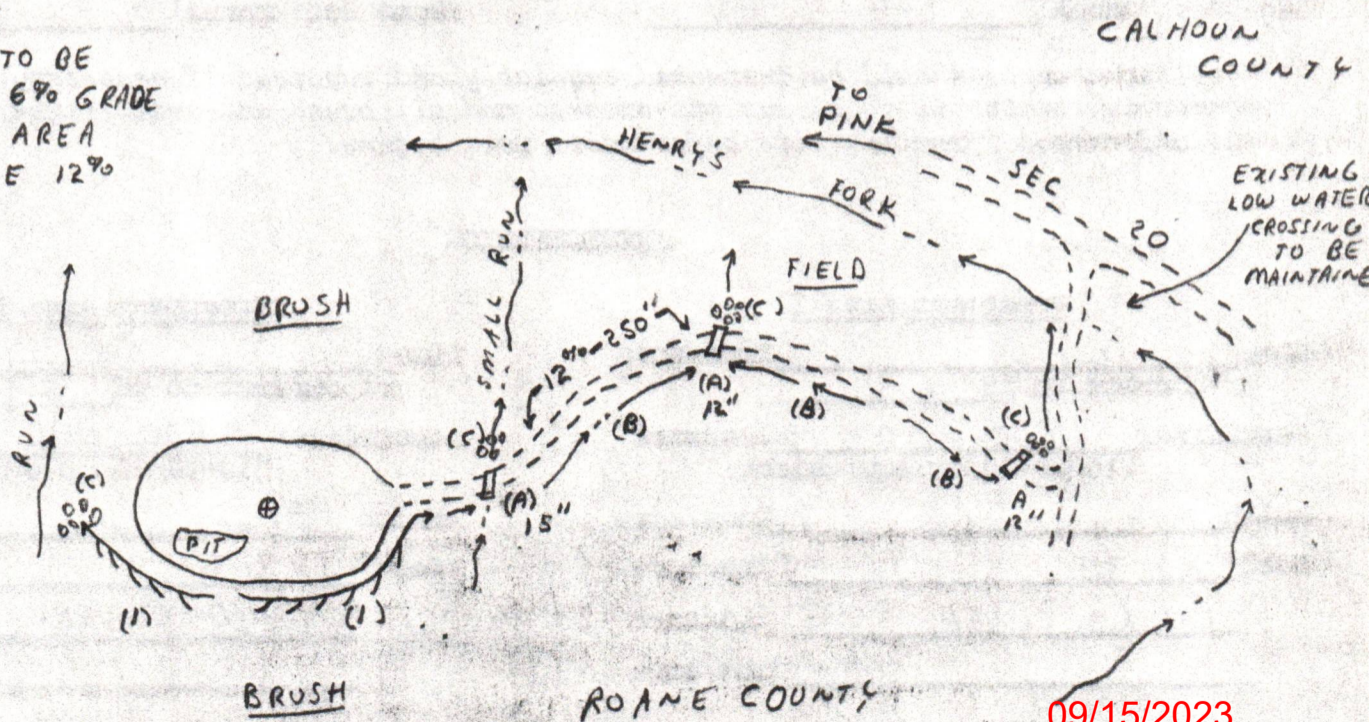 TO BE
6% GRADE
AREA
E 12%
CALHOUN
COUNTY
TO
PINK
HENRY'S
FORK
SEC
20
EXISTING
LOW WATER
CROSSING
TO BE
MAINTAINE
RUN
SMALL
BRUSH
FIELD
12% - 250'
(C)
(A)
12"
(B)
(B)
(C)
(B)
A
12"
RUN
(C)
(C)
(A)
15"
PIT
(1)
(1)
BRUSH
ROANE COUNTY
09/15/2023